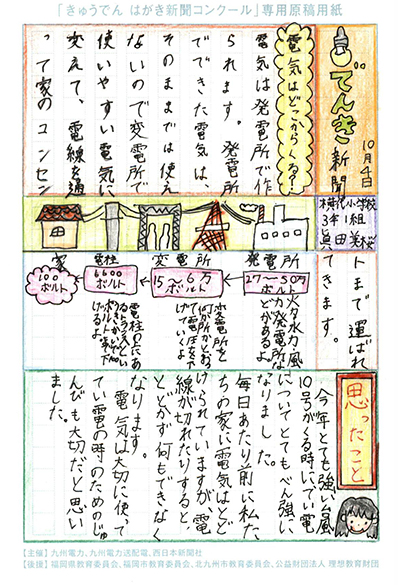 「きゅうでん はがき新聞コンクール」専用原稿用紙
でんき新聞
10月4日
小学校
3年1組
電気はどこからくる?!
電気は発電所で作
られます。発電所
でできた電気は、
そのままでは使え
ないので変電所で
使いやすい電気に
変えて、電線を通
って家のコンセン
トまで運ばれ
てきます。
発電所
27〜50万
ボルト
火力水力風
力発電所な
どがあるよ
変電所
15〜6万
ボルト
変電所を
何か所かとおっ
て電圧を下
げていくよ
電柱
6600
ボルト
電柱の上にあ
家
100
ボルト
思ったこと
今年とても強い台風
10号がくる時にてい電
についてとてもべん強に
なりました。
毎日あたり前に私た
ちの家に電気はとど
けられていますが、電
線が切れたりすると、
とどかず何もできなく
なります。
電気は大切に使っ
てい電の時のためのじゅ
んびも大切だと思い
ました。
【主催】九州電力、九州電力送配電、西日本新聞社
【後援】福岡県教育委員会、福岡市教育委員会、北九州市教育委員会、公益財団法人 理想教育財団